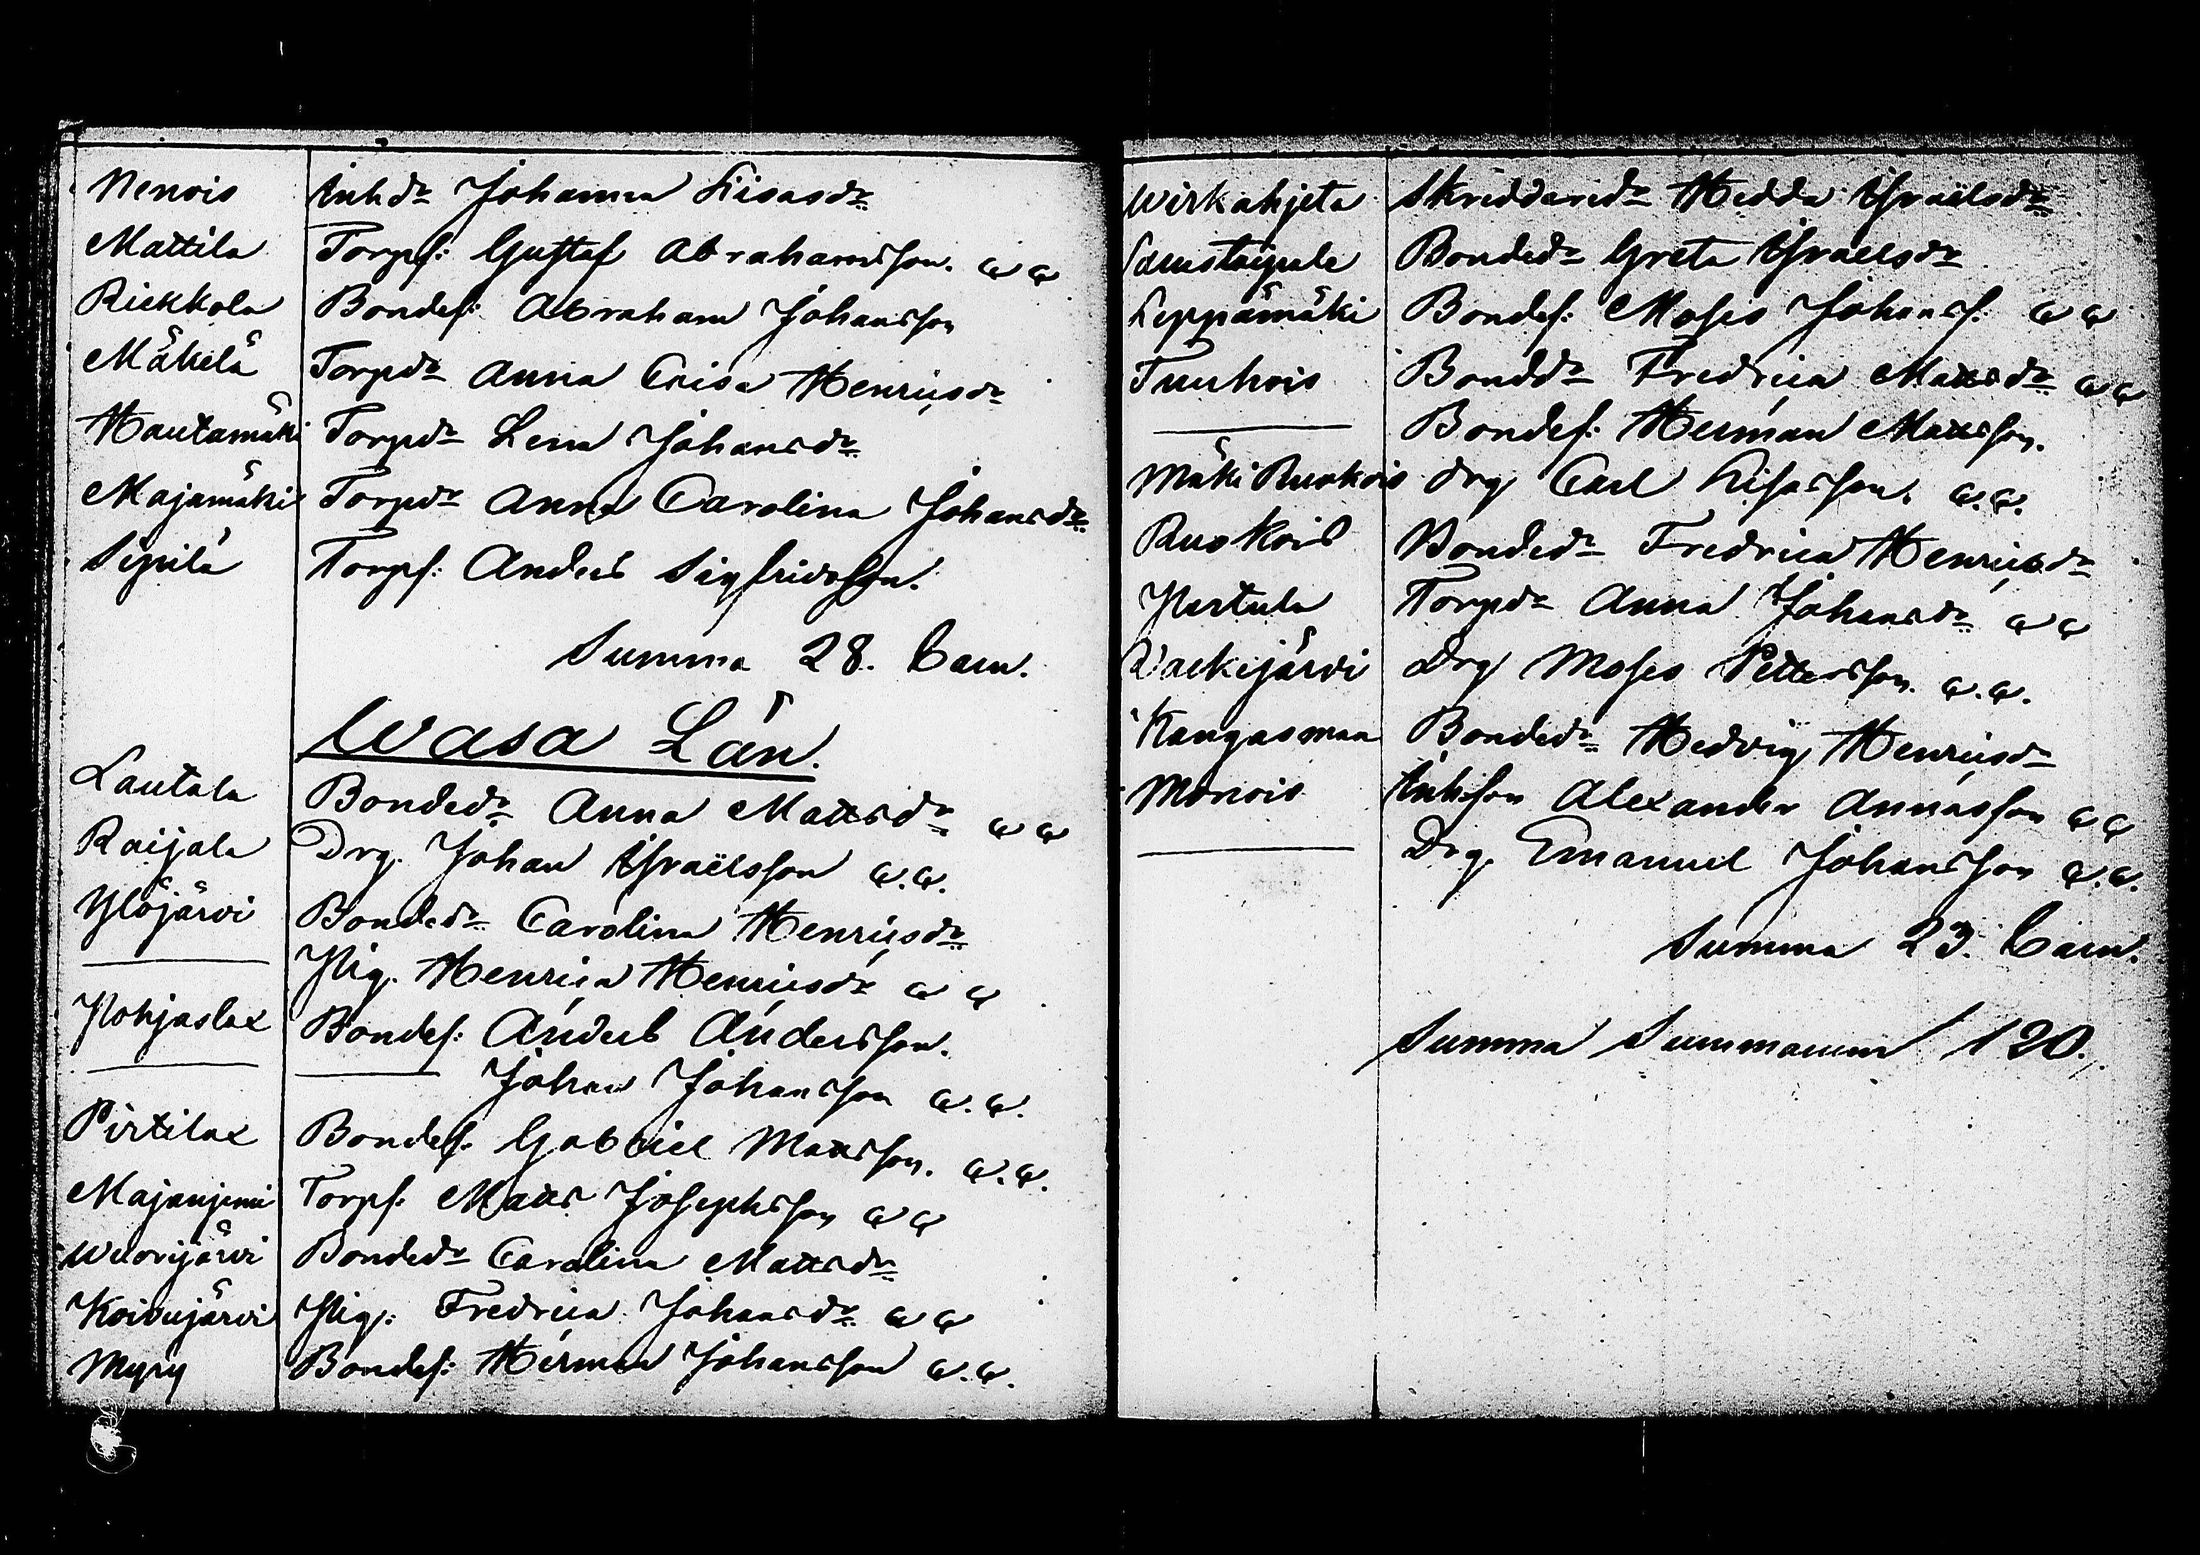 Nenois Inhdr Johanna Lisasdr
Mattila Torps: Gustaf Abrahamsson. w w
Riekkola Bondes: Abraham Johansson
Mäkelä Torpdr Anna Caisa Henricsdr
Hautamäki Torpdr Lena Johansdr
Majamäki Torpdr Anna Carolina Johansdr
Sipilä Torps: Anders Sigfridsson.
Summa 28. Barn.
Wasa Län.
Lautala Bondedr Anna Mattsdr w w
Raijala Drg. Johan Israëlsson w.w.
Ylöjärvi Bondedr Carolina Henricsdr
Pig. Henrica Henricsdr w w
Pohjaslax Bondes: Anders Andersson.
Johan Johansson w.w.
Pirtilax Bondes: Gabriel Mattsson. w.w.
Majanjemi Torps: Matts Josephsson w w
Bondedr Carolina Mattsdr
Koivujärvi Pig: Fredrica Johansdr w w
Myry Bondes: Herman Johansson w.w.
Wirkahjeta Skräddaredr Hedda Israëlsdr
Bondedr Greta Israelsdr
Leppämäki Bondes: Moses Johanss. w w
Tuuhois Bonddr Fredrica Mattsdr w w
Bondes: Herman Mattsson.
Mäki Ruokois Drg Carl Lisasson. w.w.
Ruokois Bondedr Fredrica Henricsdr
Pertula Torpdr Anna Johansdr w w
Drg Moses Pettersson. w.w.
Kangasmaa Bondedr Hedvig Henricsdr
Monois Inhson Alexander Annasson w w
Drg. Emanuel Johansson w.w.
Summa 23. Barn.
Summa Summarum 120.